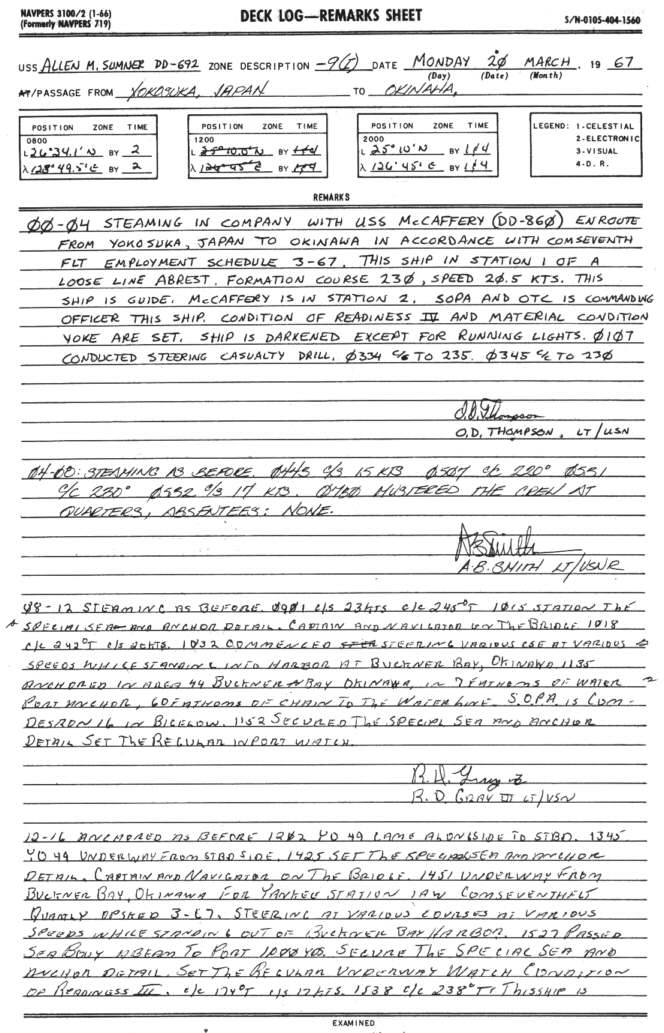 NAVPERS 3100/2 (1-66)
(Formerly NAVPERS 719)
DECK LOG—REMARKS SHEET
S/N-0105-404-1560
USS ALLEN M. SUMNER DD-692 ZONE DESCRIPTION -9(I) DATE MONDAY 20 MARCH, 19 67
(Day) (Date) (Month)
AT/PASSAGE FROM YOKOSUKA, JAPAN TO OKINAWA,
POSITION ZONE TIME
0800
L 26°34.1'N BY 2
λ 128°49.5'E BY 2
POSITION ZONE TIME
1200
L 25°10.0'N BY 1/4
λ 126°45'E BY 1/4
POSITION ZONE TIME
2000
L 25°10'N BY 1/4
λ 126°45'E BY 1/4
LEGEND: 1-CELESTIAL
2-ELECTRONIC
3-VISUAL
4-D. R.
REMARKS
00-04 STEAMING IN COMPANY WITH USS McCAFFERY (DD-860) ENROUTE
FROM YOKOSUKA, JAPAN TO OKINAWA IN ACCORDANCE WITH COMSEVENTH
FLT EMPLOYMENT SCHEDULE 3-67. THIS SHIP IN STATION 1 OF A
LOOSE LINE ABREST. FORMATION COURSE 230, SPEED 20.5 KTS. THIS
SHIP IS GUIDE. McCAFFERY IS IN STATION 2. SOPA AND OTC IS COMMANDING
OFFICER THIS SHIP. CONDITION OF READINESS IV AND MATERIAL CONDITION
YOKE ARE SET. SHIP IS DARKENED EXCEPT FOR RUNNING LIGHTS. 0107
CONDUCTED STEERING CASUALTY DRILL. 0334 C/C TO 235. 0345 C/C TO 230
O.D. Thompson
O.D. THOMPSON, LT/USN
04-08: STEAMING AS BEFORE. 0445 C/S 15 KTS 0507 C/C 220° 0551
C/C 230° 0552 C/S 17 KTS. 0730 MUSTERED THE CREW AT
QUARTERS, ABSENTEES: NONE.
AB Smith
A.B. SMITH LT/USNR
08-12 STEAMING AS BEFORE. 0901 C/S 23KTS C/C 245°T 1015 STATION THE
SPECIAL SEA AND ANCHOR DETAIL. CAPTAIN AND NAVIGATOR ON THE BRIDGE 1018
C/C 242°T C/S 20KTS. 1032 COMMENCED STEERING VARIOUS CSE AT VARIOUS
SPEEDS WHILE STANDING INTO HARBOR AT BUCKNER BAY, OKINAWA 1135
ANCHORED IN AREA 44 BUCKNER BAY OKINAWA, IN 7 FATHOMS OF WATER
PORT ANCHOR, 60 FATHOMS OF CHAIN TO THE WATERLINE. S.O.P.A. IS COM-
DESRON 16 IN BIGELOW. 1152 SECURED THE SPECIAL SEA AND ANCHOR
DETAIL SET THE REGULAR INPORT WATCH.
R.D. Gray III
R.D. GRAY III LT/USN
12-16 ANCHORED AS BEFORE 1202 YO 49 CAME ALONGSIDE TO STBD. 1345
YO 49 UNDERWAY FROM STBD SIDE. 1425 SET THE SPECIAL SEA AND ANCHOR
DETAIL. CAPTAIN AND NAVIGATOR ON THE BRIDGE. 1451 UNDERWAY FROM
BUCKNER BAY, OKINAWA FOR YANKEE STATION IAW COMSEVENTHFLT
QUARTLY OPSKED 3-67. STEERING AT VARIOUS COURSES AT VARIOUS
SPEEDS WHILE STANDING OUT OF BUCKNER BAY HARBOR. 1527 PASSED
SEA BUOY ABEAM TO PORT 1000 YDS. SECURE THE SPECIAL SEA AND
ANCHOR DETAIL. SET THE REGULAR UNDERWAY WATCH CONDITION
OF READINESS III. C/C 174°T C/S 17KTS. 1538 C/C 238°T. THIS SHIP IS
EXAMINED